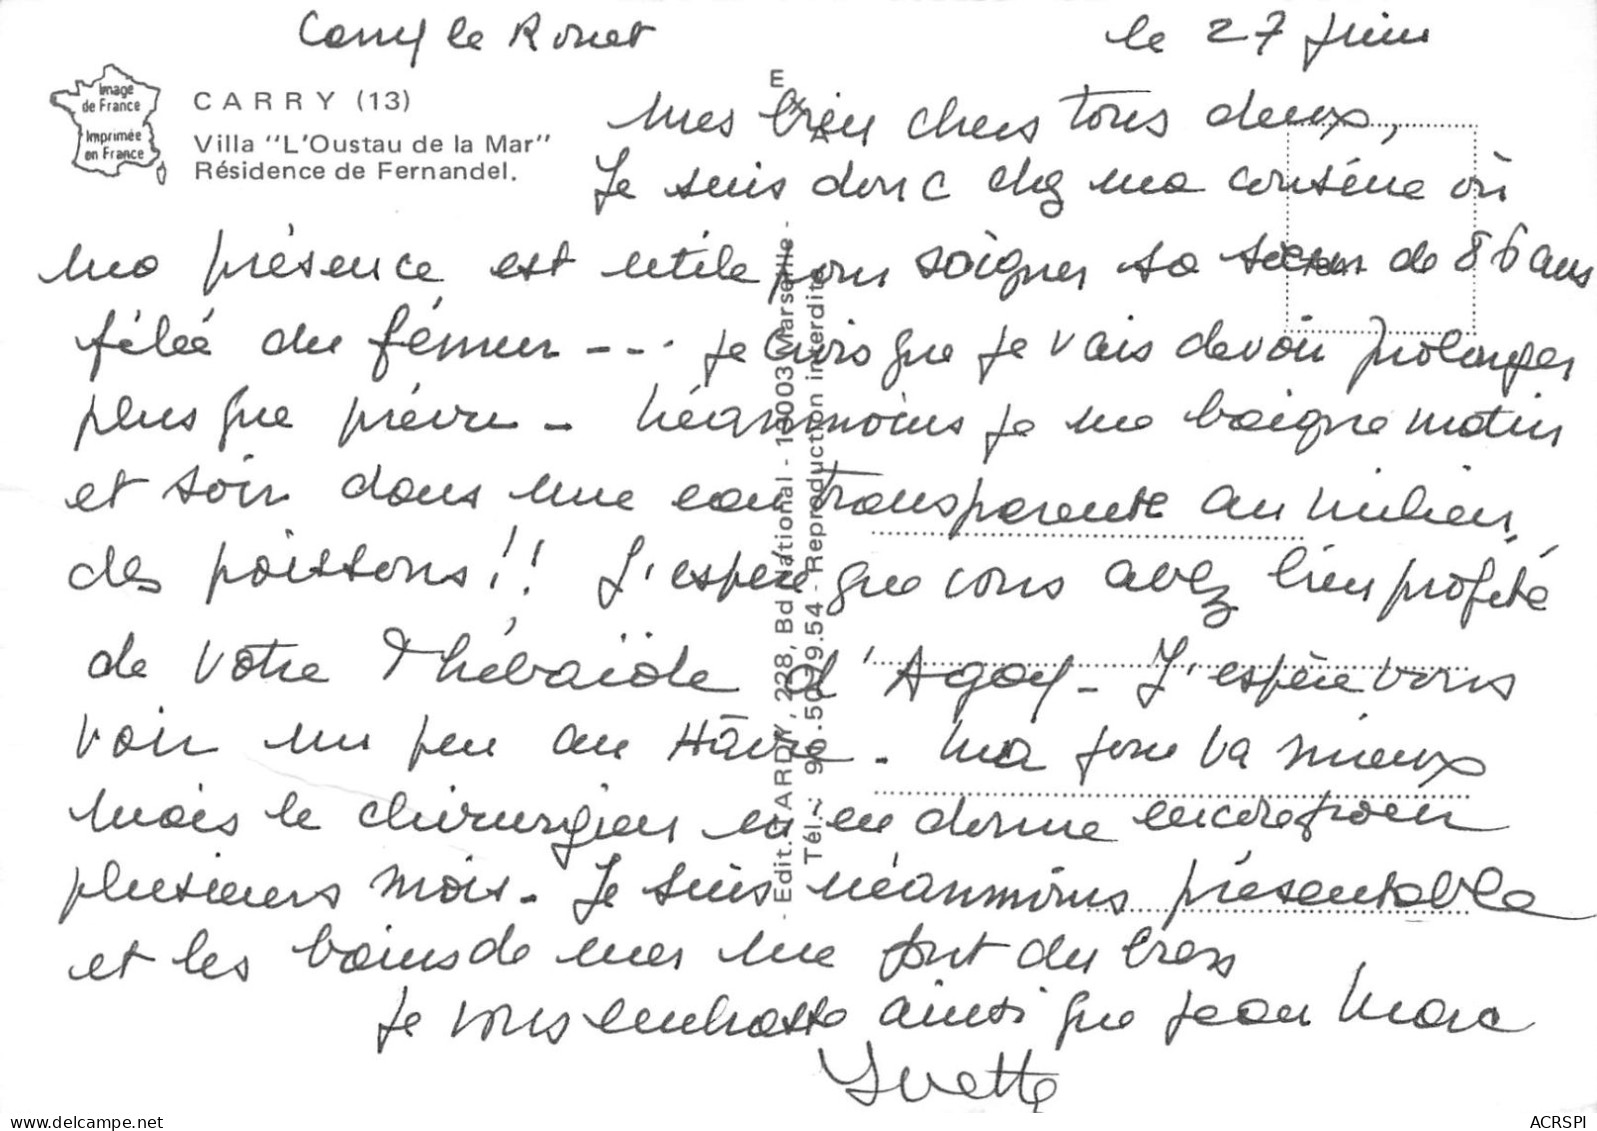 Carry le Rouet le 27 Juin
Image
de France
Imprimée
en France
CARRY (13)
Villa "L'Oustau de la Mar"
Résidence de Fernandel.
Mes bien chers tous deux,
Je suis donc chez ma cousine où
ma présence est utile pour soigner sa sœur de 86 ans
fêlée du fémur --- Je crois que je vais devoir prolonger
plus que prévu - Néanmoins je me baigne matin
et soir dans une eau transparente au milieu
des poissons!! J'espère que vous avez bien profité
de votre Thébaïde d'Agay - J'espère vous
voir un peu au Hâvre - Ma joue va mieux
mais le chirurgien m'en donne encore pour
plusieurs mois - Je suis néanmoins présentable
et les bains de mer me font du bien
Je vous embrasse ainsi que Jean Marc
Yvette
- Edit. ARDY, 228, Bd National - 13003 Marseille -
Reproduction interdite
delcampe.net
ACRSPI